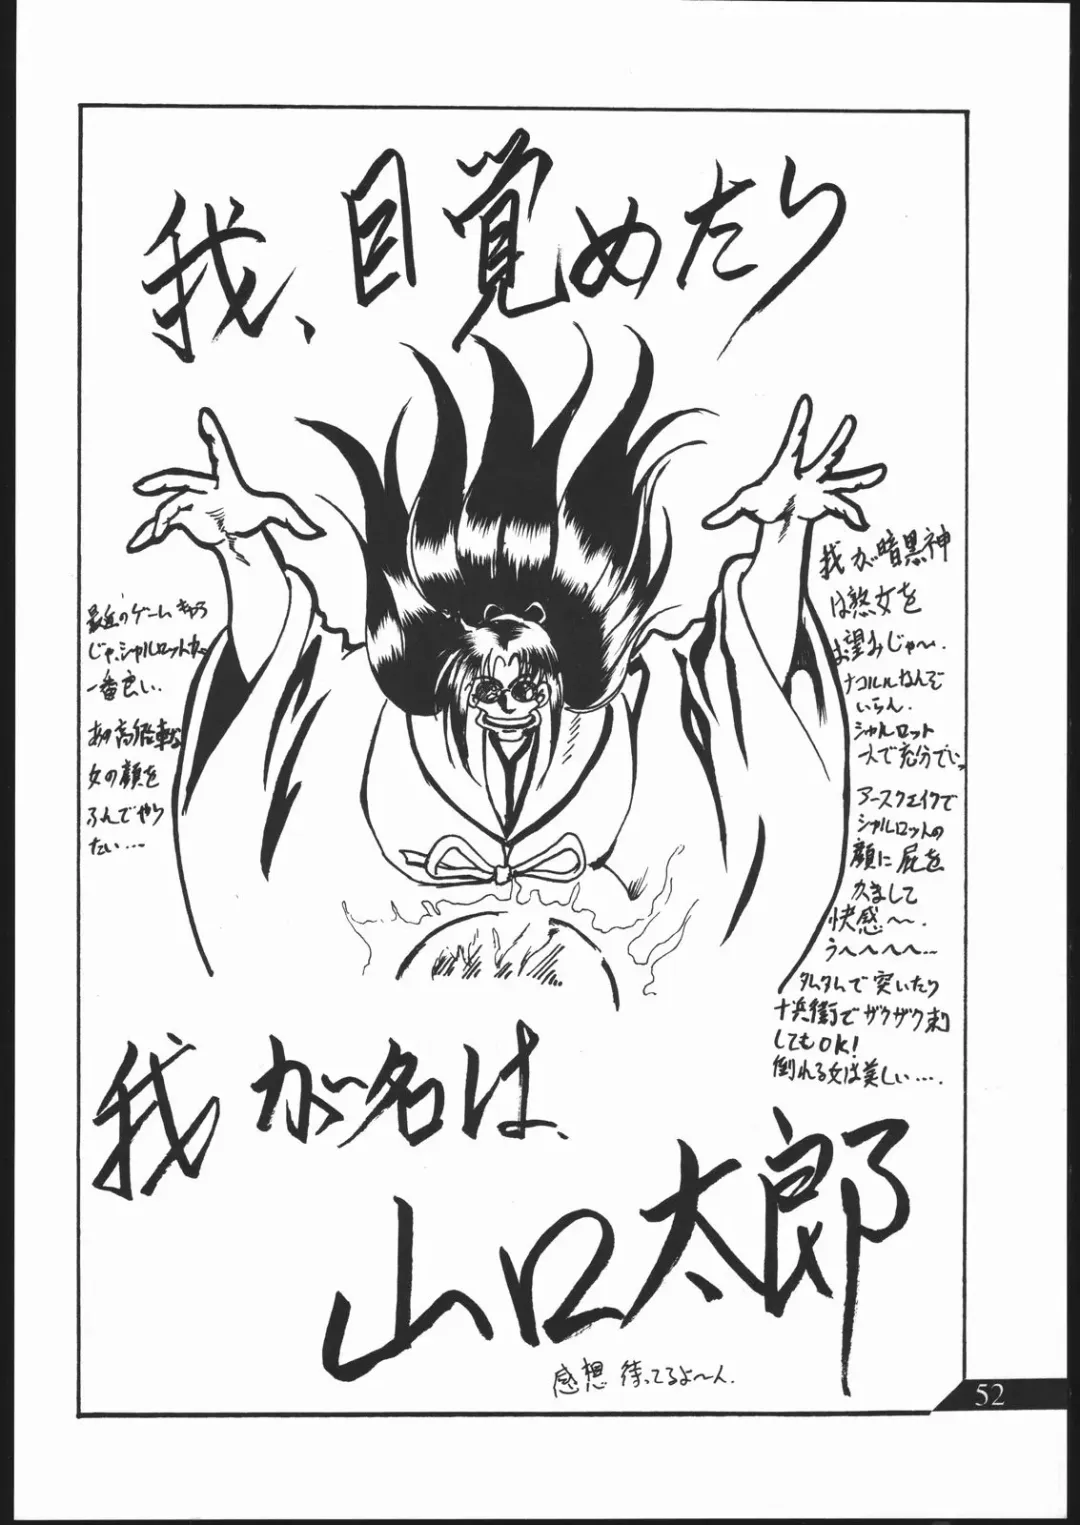 我、目覚めたり
我が暗黒神
は熟女を
お望みじゃ〜.
ナコルルなんぞ
いらん.
シャルロット
一人で充分でい
アースクェイクで
シャルロットの
顔に屁を
かまして
快感〜〜.
うへへへへ…
タムタムで突いたり
十兵衛でザクザク刺
してもOK!
倒れる女は美しい….
最近のゲームキャラ
じゃ、シャルロットが
一番良い.
あの高飛車な
女の顔を
ふんでやり
たい….
我が名は、
山口太郎
感想待ってるよ〜ん.
52